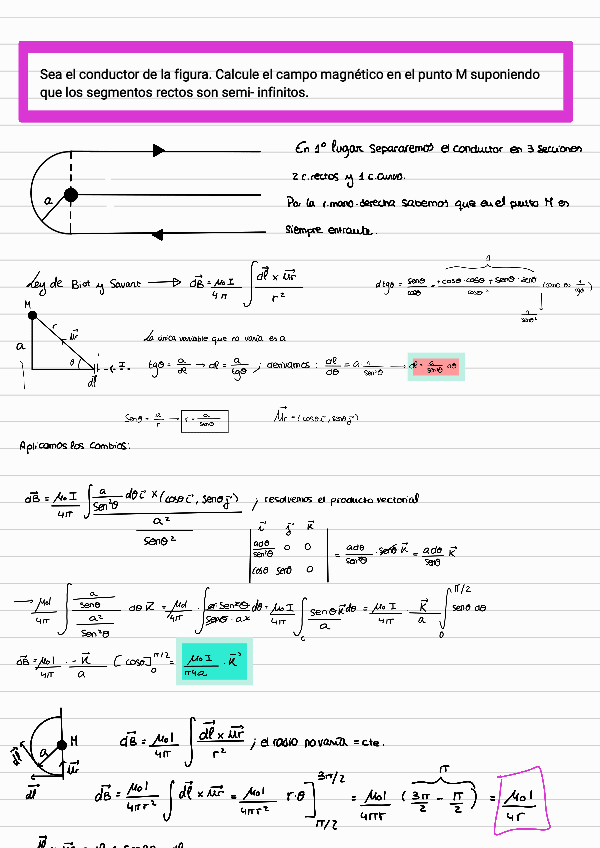 Sea el conductor de la figura. Calcule el campo magnético en el punto M suponiendo
que los segmentos rectos son semi- infinitos.
En 1º lugar separaremos el conductor en 3 secciones
2 c.rectos y 1 c.curvo.
a
Por la r.mano.derecha sabemos que en el punto M es
siempre entrante.
Ley de Biot y Savart → dB⃗ = μ₀ I / 4π ∫ dl⃗ × u⃗r / r²
M
La única variable que no varía es a
a r u⃗r θ I dl
tgθ = a/dl → dl = a/tgθ ; derivamos : dl/dθ = a 1/sen²θ → dl = a/sen²θ dθ
Senθ = a/r → r = a/senθ u⃗r = (cosθ i⃗, senθ j⃗)
Aplicamos los cambios:
dB⃗ = μ₀ I / 4π ∫ a/sen²θ dθ i⃗ × (cosθ i⃗, senθ j⃗) / a²/senθ² ; resolvemos el producto vectorial
i⃗ j⃗ k⃗
adθ/sen²θ 0 0 = adθ/sen²θ · senθ k⃗ = adθ/senθ k⃗
cosθ senθ 0
→ μ₀I/4π ∫ a/senθ / a²/sen²θ dθ k⃗ = μ₀I/4π · ∫ a sen²θ / senθ · a² dθ = μ₀ I/4π ∫ senθ k⃗ dθ / a = μ₀ I/4π · k⃗/a ∫ 0 π/2 senθ dθ
dB⃗ = μ₀ I/4π · -k⃗/a [cosθ] 0 π/2 = μ₀ I/π4a · k⃗
M a dl⃗ u⃗r
dB⃗ = μ₀ I/4π ∫ dl⃗ × u⃗r / r² ; el radio no varía = cte.
dl⃗
dB⃗ = μ₀ I/4πr² ∫ dl⃗ × u⃗r = μ₀ I/4πr² r·θ ] π/2 3π/2 = μ₀ I/4πr (3π/2 - π/2) = μ₀ I/4r
π